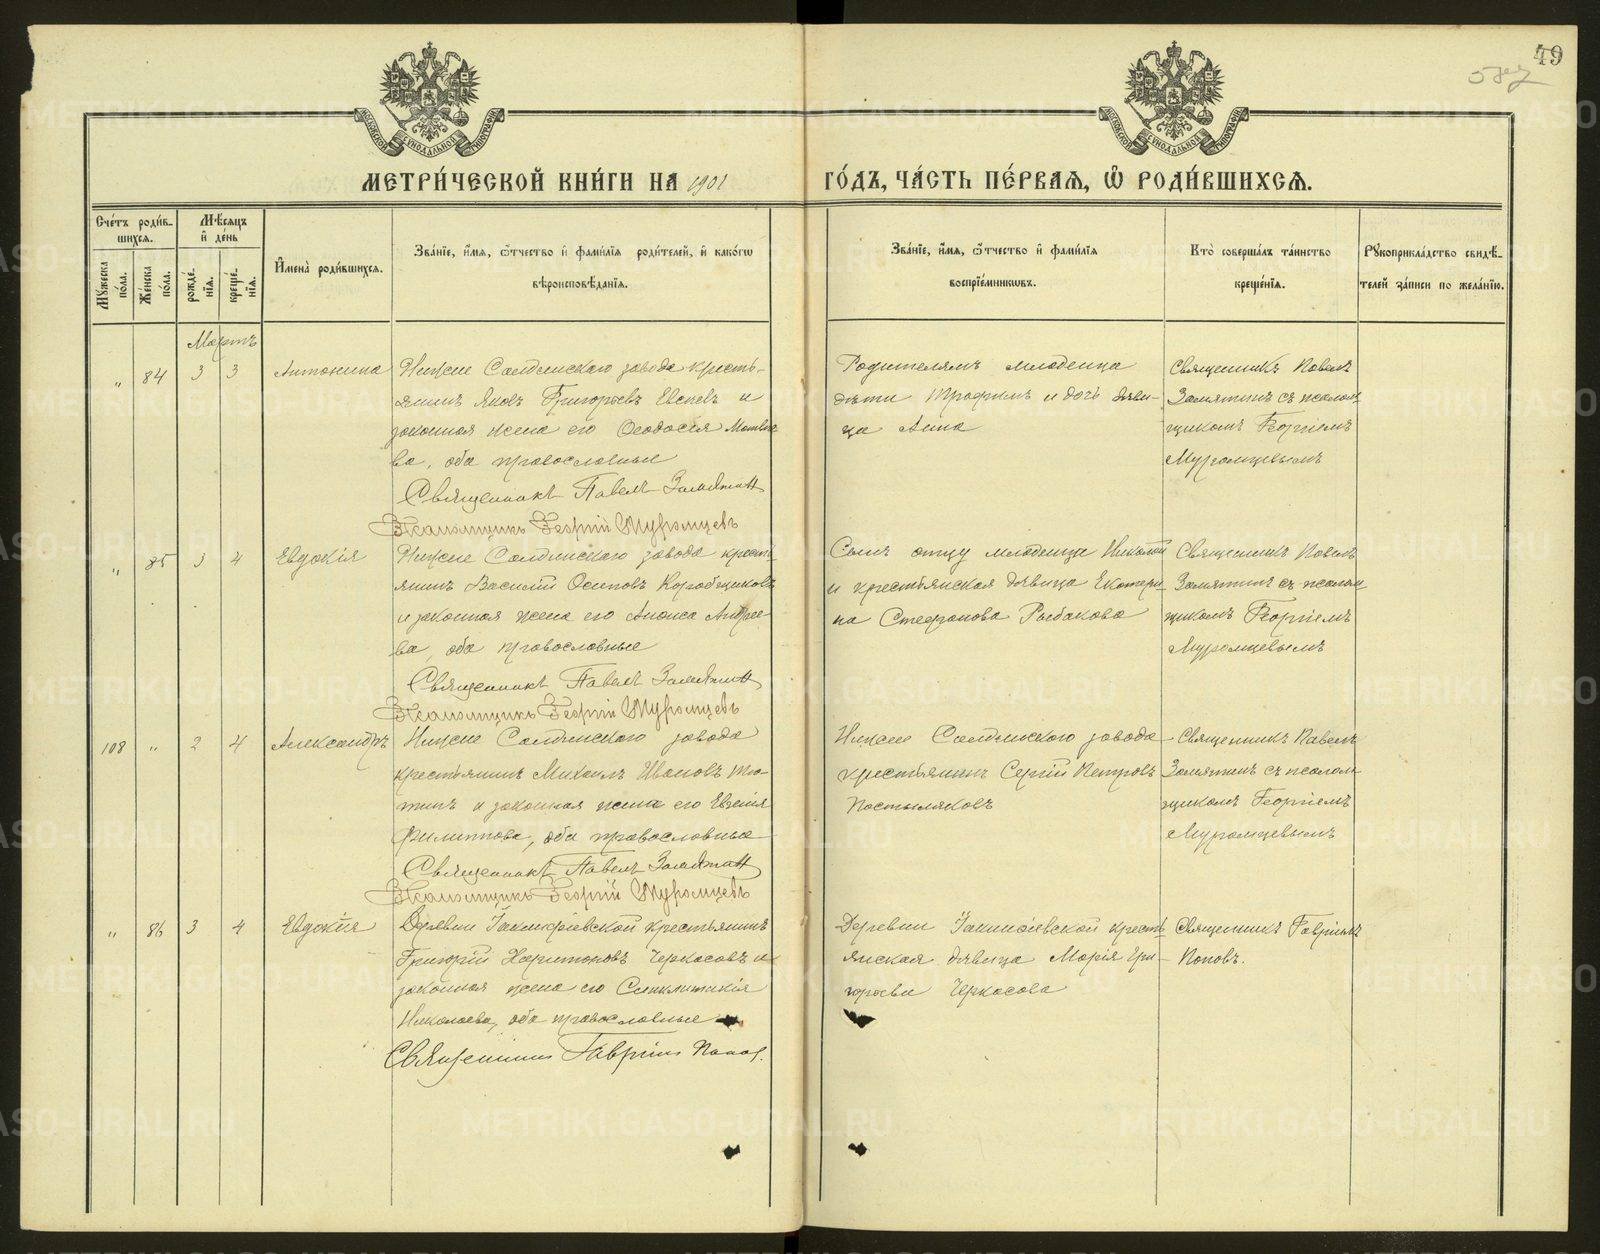 49
МОСКОВСКОЙ СѴНОДАЛЬНОЙ ТИПОГРАФІИ
МОСКОВСКОЙ СѴНОДАЛЬНОЙ ТИПОГРАФІИ
МЕТРИ́ЧЕСКОЙ КНИ́ГИ НА 1901 ГО́ДЪ, ЧА́СТЬ ПЕ́РВАѦ, Ѽ РОДИ́ВШИХСѦ.
Сче́тъ роди́в-
шихсѧ.
Мѣ́сѧцъ
и҆ де́нь
Мꙋ́жеска
по́ла.
Же́нска
по́ла.
рожде́-
нїѧ.
креще́-
нїѧ.
И҆мена̀ роди́вшихсѧ.
Зва́нїе, и҆́мѧ, ѻ҆́тчество и҆ фамилїѧ роди́телей, и҆ како́гѡ
вѣроисповѣ́данїѧ.
Зва́нїе, и҆́мѧ, ѻ҆́тчество и҆ фами́лїѧ
воспрїе́мникѡвъ.
Кто̀ соверша́лъ та́инство
креще́нїѧ.
Рꙋкоприкла́дство свидѣ́-
телей за́писи по жела́нїю.
Мартъ
" 84 3 3 Антонина
Нижне Салдинскаго завода кресть-
янинъ Яковъ Григорьевъ Евсеевъ и
законная жена его Ѳеодосія Матвѣе
ва, оба православные
Священникъ Павелъ Замятин
Псаломщикъ Георгій Муромцевъ
Родителямъ младенца
дѣти Трофимъ и дочь дѣви-
ца Анна
Священникъ Павелъ
Замятинъ съ псалом-
щикомъ Георгіемъ
Муромцевымъ
" 85 3 4 Евдокія
Нижне Салдинскаго завода кресть-
янинъ Василій Осиповъ Коробещиковъ
и законная жена его Аниса Андрее-
ва, оба православные
Священникъ Павелъ Замятин
Псаломщикъ Георгій Муромцевъ
Сынъ отцу младенца Николай
и крестьянская дѣвица Екатери-
на Стефанова Рыбакова
Священникъ Павелъ
Замятинъ съ псалом-
щикомъ Георгіемъ
Муромцевымъ
108 " 2 4 Александръ
Нижне Салдинскаго завода
крестьянинъ Михаилъ Ивановъ Тю-
тинъ и законная жена его Евгенія
Филиппова, оба православные
Священникъ Павелъ Замятин
Псаломщикъ Георгій Муромцевъ
Нижне Салдинскаго завода
крестьянинъ Сергій Петровъ
Постыляковъ
Священникъ Павелъ
Замятинъ съ псалом-
щикомъ Георгіемъ
Муромцевымъ
" 86 3 4 Евдокія
Деревни Іакинфіевской крестьянинъ
Григорій Харитоновъ Черкасовъ и
законная жена его Синклитикія
Николаева, оба православные
Священникъ Гавріилъ Попов.
Деревни Іакинфіевской кресть-
янская дѣвица Марія Гри-
горьева Черкасова
Священникъ Гавріилъ
Поповъ.
METRIKI.GASO-URAL.RU